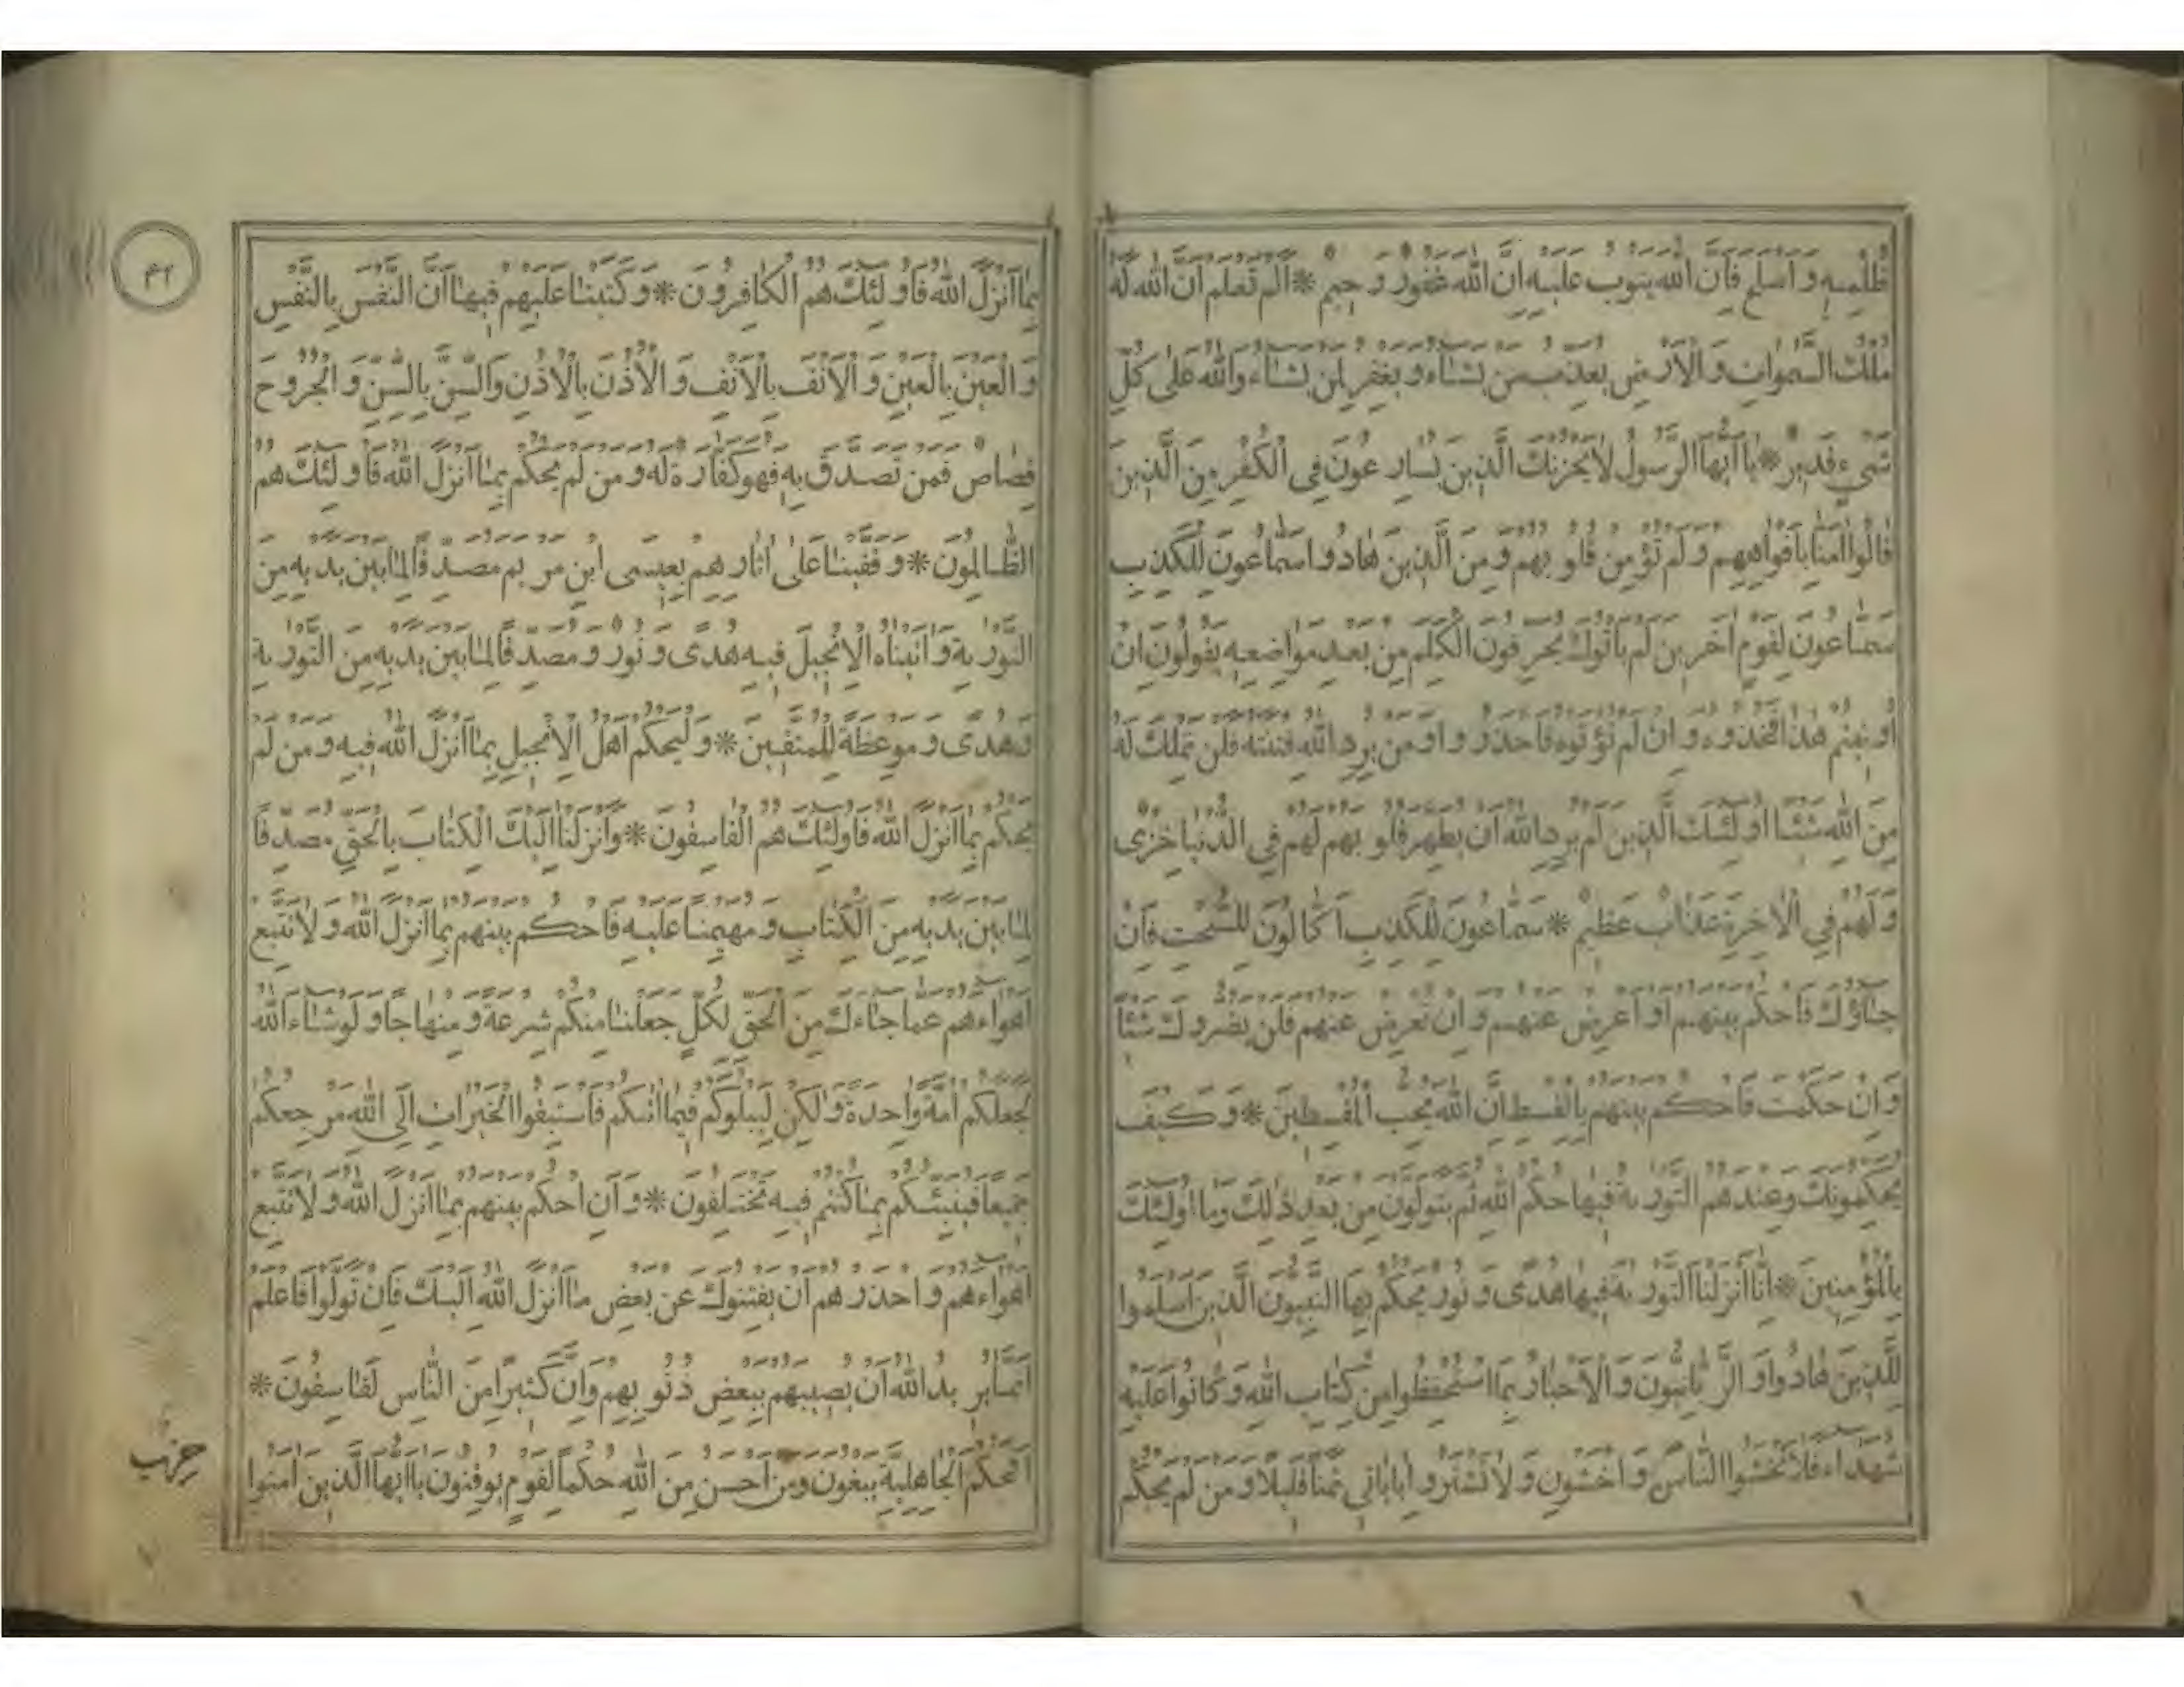 ظُلْمِهِ وَاَصْلَحَ فَاِنَّ اللّٰهَ يَتُوبُ عَلَيْهِ اِنَّ اللّٰهَ غَفُورٌ رَحِيمٌ * اَلَمْ تَعْلَمْ اَنَّ اللّٰهَ لَهُ
مُلْكُ السَّمٰوَاتِ وَالْاَرْضِ يُعَذِّبُ مَنْ يَشَاءُ وَيَغْفِرُ لِمَنْ يَشَاءُ وَاللّٰهُ عَلٰى كُلِّ
شَيْءٍ قَدِيرٌ * يَااَيُّهَا الرَّسُولُ لَا يَحْزُنْكَ الَّذِينَ يُسَارِعُونَ فِي الْكُفْرِ مِنَ الَّذِينَ
قَالُوا اٰمَنَّا بِاَفْوَاهِهِمْ وَلَمْ تُؤْمِنْ قُلُوبُهُمْ وَمِنَ الَّذِينَ هَادُوا سَمَّاعُونَ لِلْكَذِبِ
سَمَّاعُونَ لِقَوْمٍ اٰخَرِينَ لَمْ يَأْتُوكَ يُحَرِّفُونَ الْكَلِمَ مِنْ بَعْدِ مَوَاضِعِهِ يَقُولُونَ اِنْ
اُوتِيتُمْ هٰذَا فَخُذُوهُ وَاِنْ لَمْ تُؤْتَوْهُ فَاحْذَرُوا وَمَنْ يُرِدِ اللّٰهُ فِتْنَتَهُ فَلَنْ تَمْلِكَ لَهُ
مِنَ اللّٰهِ شَيْئًا اُولٰئِكَ الَّذِينَ لَمْ يُرِدِ اللّٰهُ اَنْ يُطَهِّرَ قُلُوبَهُمْ لَهُمْ فِي الدُّنْيَا خِزْيٌ
وَلَهُمْ فِي الْاٰخِرَةِ عَذَابٌ عَظِيمٌ * سَمَّاعُونَ لِلْكَذِبِ اَكَّالُونَ لِلسُّحْتِ فَاِنْ
جَاؤُكَ فَاحْكُمْ بَيْنَهُمْ اَوْ اَعْرِضْ عَنْهُمْ وَاِنْ تُعْرِضْ عَنْهُمْ فَلَنْ يَضُرُّوكَ شَيْئًا
وَاِنْ حَكَمْتَ فَاحْكُمْ بَيْنَهُمْ بِالْقِسْطِ اِنَّ اللّٰهَ يُحِبُّ الْمُقْسِطِينَ * وَكَيْفَ
يُحَكِّمُونَكَ وَعِنْدَهُمُ التَّوْرٰيةُ فِيهَا حُكْمُ اللّٰهِ ثُمَّ يَتَوَلَّوْنَ مِنْ بَعْدِ ذٰلِكَ وَمَا اُولٰئِكَ
بِالْمُؤْمِنِينَ * اِنَّا اَنْزَلْنَا التَّوْرٰيةَ فِيهَا هُدًى وَنُورٌ يَحْكُمُ بِهَا النَّبِيُّونَ الَّذِينَ اَسْلَمُوا
لِلَّذِينَ هَادُوا وَالرَّبَّانِيُّونَ وَالْاَحْبَارُ بِمَا اسْتُحْفِظُوا مِنْ كِتَابِ اللّٰهِ وَكَانُوا عَلَيْهِ
شُهَدَاءَ فَلَا تَخْشَوُا النَّاسَ وَاخْشَوْنِ وَلَا تَشْتَرُوا بِاٰيَاتِي ثَمَنًا قَلِيلًا وَمَنْ لَمْ يَحْكُمْ
٤٢
بِمَا اَنْزَلَ اللّٰهُ فَاُولٰئِكَ هُمُ الْكَافِرُونَ * وَكَتَبْنَا عَلَيْهِمْ فِيهَا اَنَّ النَّفْسَ بِالنَّفْسِ
وَالْعَيْنَ بِالْعَيْنِ وَالْاَنْفَ بِالْاَنْفِ وَالْاُذُنَ بِالْاُذُنِ وَالسِّنَّ بِالسِّنِّ وَالْجُرُوحَ
قِصَاصٌ فَمَنْ تَصَدَّقَ بِهِ فَهُوَ كَفَّارَةٌ لَهُ وَمَنْ لَمْ يَحْكُمْ بِمَا اَنْزَلَ اللّٰهُ فَاُولٰئِكَ هُمُ
الظَّالِمُونَ * وَقَفَّيْنَا عَلٰى اٰثَارِهِمْ بِعِيسَى ابْنِ مَرْيَمَ مُصَدِّقًا لِمَا بَيْنَ يَدَيْهِ مِنَ
التَّوْرٰيةِ وَاٰتَيْنَاهُ الْاِنْجِيلَ فِيهِ هُدًى وَنُورٌ وَمُصَدِّقًا لِمَا بَيْنَ يَدَيْهِ مِنَ التَّوْرٰيةِ
وَهُدًى وَمَوْعِظَةً لِلْمُتَّقِينَ * وَلْيَحْكُمْ اَهْلُ الْاِنْجِيلِ بِمَا اَنْزَلَ اللّٰهُ فِيهِ وَمَنْ لَمْ
يَحْكُمْ بِمَا اَنْزَلَ اللّٰهُ فَاُولٰئِكَ هُمُ الْفَاسِقُونَ * وَاَنْزَلْنَا اِلَيْكَ الْكِتَابَ بِالْحَقِّ مُصَدِّقًا
لِمَا بَيْنَ يَدَيْهِ مِنَ الْكِتَابِ وَمُهَيْمِنًا عَلَيْهِ فَاحْكُمْ بَيْنَهُمْ بِمَا اَنْزَلَ اللّٰهُ وَلَا تَتَّبِعْ
اَهْوَاءَهُمْ عَمَّا جَاءَكَ مِنَ الْحَقِّ لِكُلٍّ جَعَلْنَا مِنْكُمْ شِرْعَةً وَمِنْهَاجًا وَلَوْ شَاءَ اللّٰهُ
لَجَعَلَكُمْ اُمَّةً وَاحِدَةً وَلٰكِنْ لِيَبْلُوَكُمْ فِيمَا اٰتٰيكُمْ فَاسْتَبِقُوا الْخَيْرَاتِ اِلَى اللّٰهِ مَرْجِعُكُمْ
جَمِيعًا فَيُنَبِّئُكُمْ بِمَا كُنْتُمْ فِيهِ تَخْتَلِفُونَ * وَاَنِ احْكُمْ بَيْنَهُمْ بِمَا اَنْزَلَ اللّٰهُ وَلَا تَتَّبِعْ
اَهْوَاءَهُمْ وَاحْذَرْهُمْ اَنْ يَفْتِنُوكَ عَنْ بَعْضِ مَا اَنْزَلَ اللّٰهُ اِلَيْكَ فَاِنْ تَوَلَّوْا فَاعْلَمْ
اَنَّمَا يُرِيدُ اللّٰهُ اَنْ يُصِيبَهُمْ بِبَعْضِ ذُنُوبِهِمْ وَاِنَّ كَثِيرًا مِنَ النَّاسِ لَفَاسِقُونَ *
اَفَحُكْمَ الْجَاهِلِيَّةِ يَبْغُونَ وَمَنْ اَحْسَنُ مِنَ اللّٰهِ حُكْمًا لِقَوْمٍ يُوقِنُونَ يَااَيُّهَا الَّذِينَ اٰمَنُوا
حزب